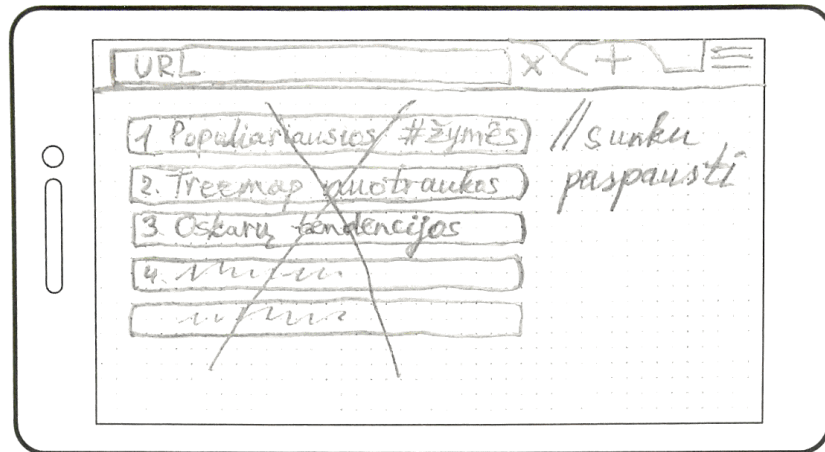 URL
1 Populiariausios #žymės
2. Treemap nuotraukos
3. Oskarų tendencijos
4.
// sunku
paspausti